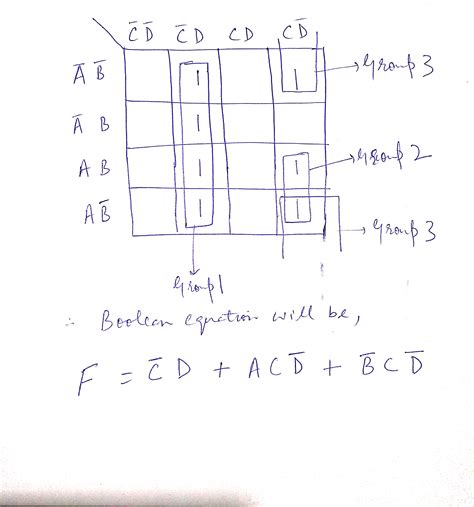 C̅ D̅ C̅ D C D C D̅
A̅ B̅ 1 1 → Group 3
A̅ B 1
A B 1 1 → Group 2
A B̅ 1 1 → Group 3
Group 1
∴ Boolean equation will be,
F = C̅ D + A C D̅ + B̅ C D̅